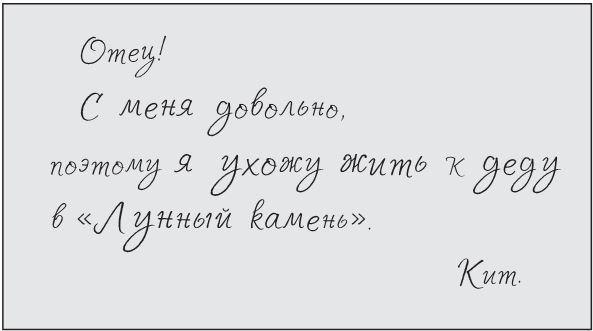 Отец!
С меня довольно,
поэтому я ухожу жить к деду
в «Лунный камень».
Кит.